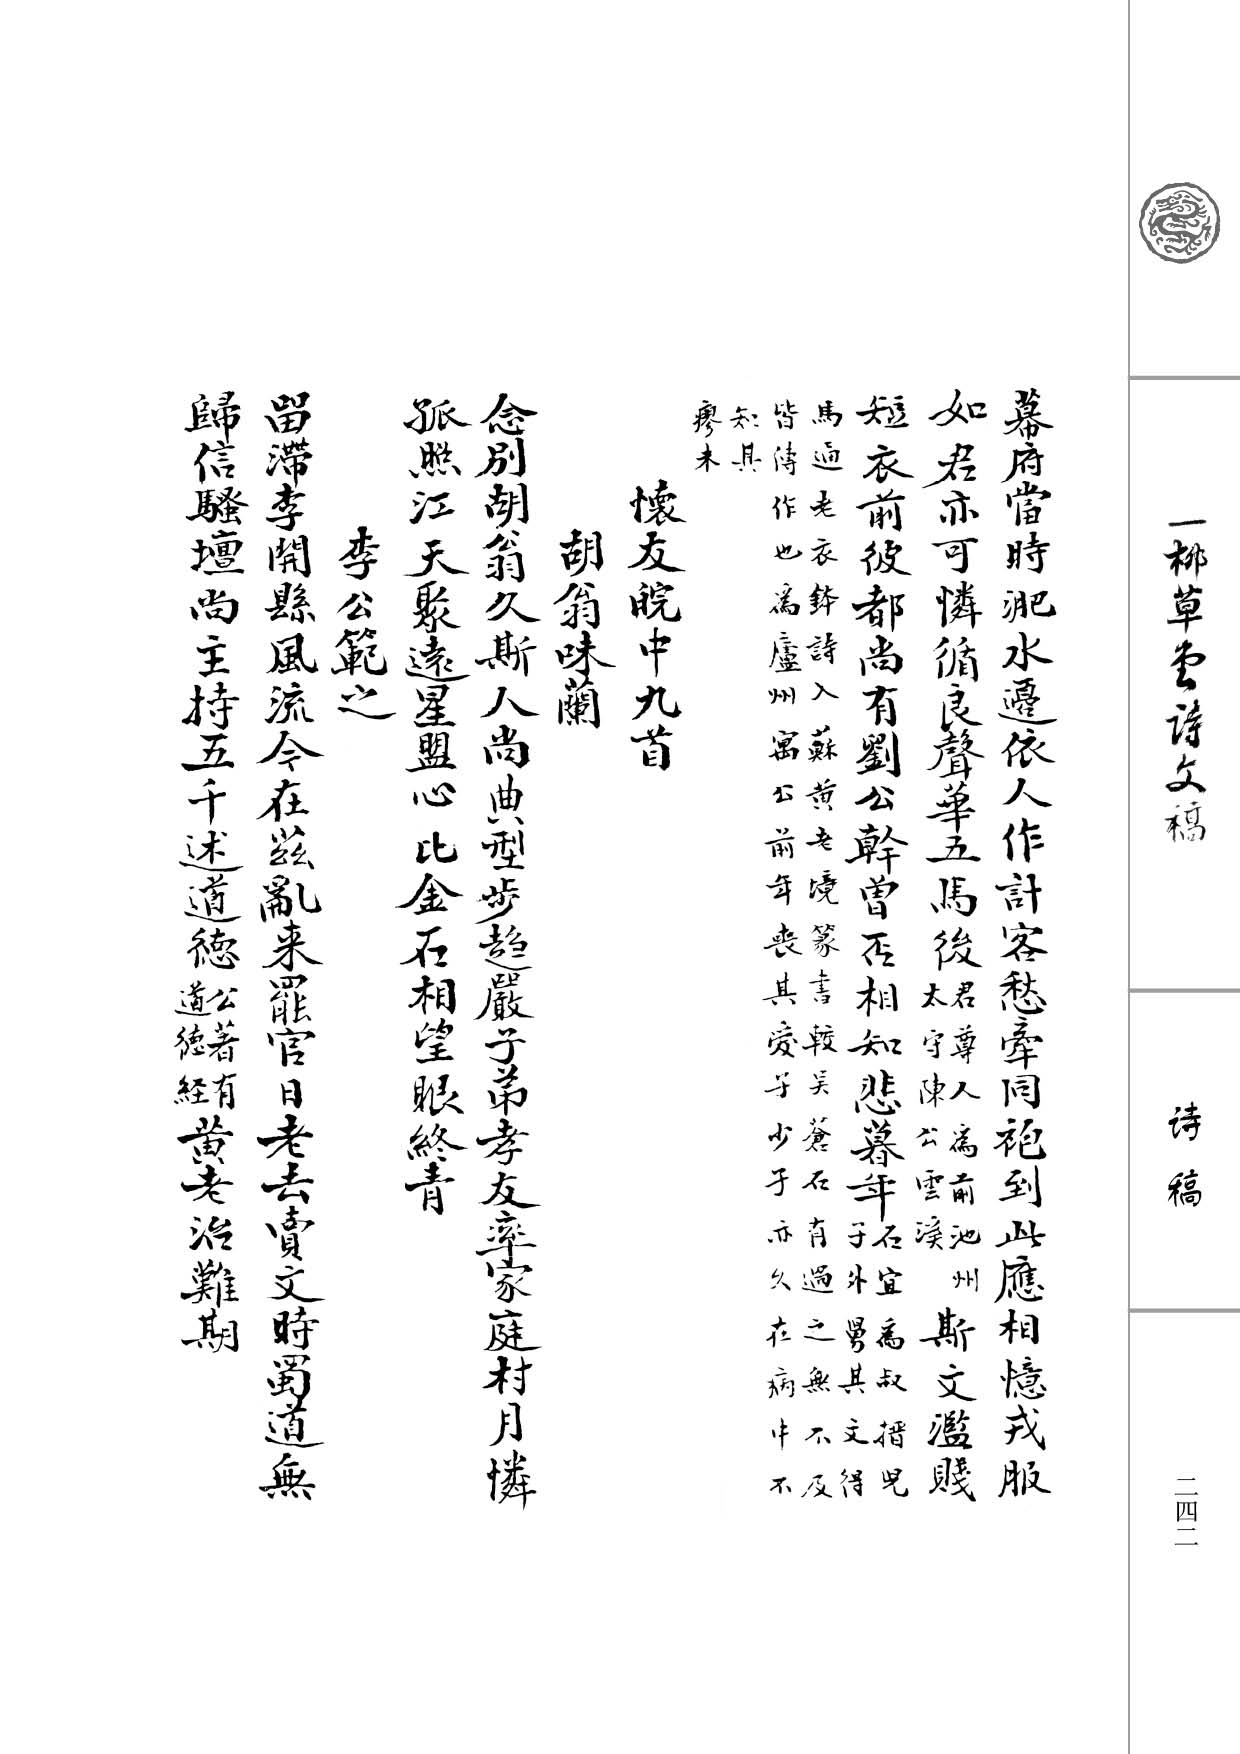 幕府當時淝水邊依人作計客愁牽同袍到此應相憶戎服
如君亦可憐循良聲華五馬後君尊人為前池州太守陳公雲溪斯文濫賤
短衣前彼都尚有劉公幹曾否相知悲暮年石宜為叔搢兒子外舅其文得
馬通老衣鉢詩入蘇黄老境篆書較吴蒼石有過之無不及
皆傳作也為廬州寓公前年喪其愛子少子亦久在病中不
知其
廖未
懷友皖中九首
胡翁味蘭
念別胡翁久斯人尚典型步趨嚴子弟孝友率家庭村月憐
孤照江天聚遠星盟心比金石相望眼終青
李公範之
留滯李開縣風流今在兹亂来罷官日老去賣文時蜀道無
歸信騷壇尚主持五千述道德公著有道德経黄老治難期
一柳草堂诗文稿
诗稿
二四二